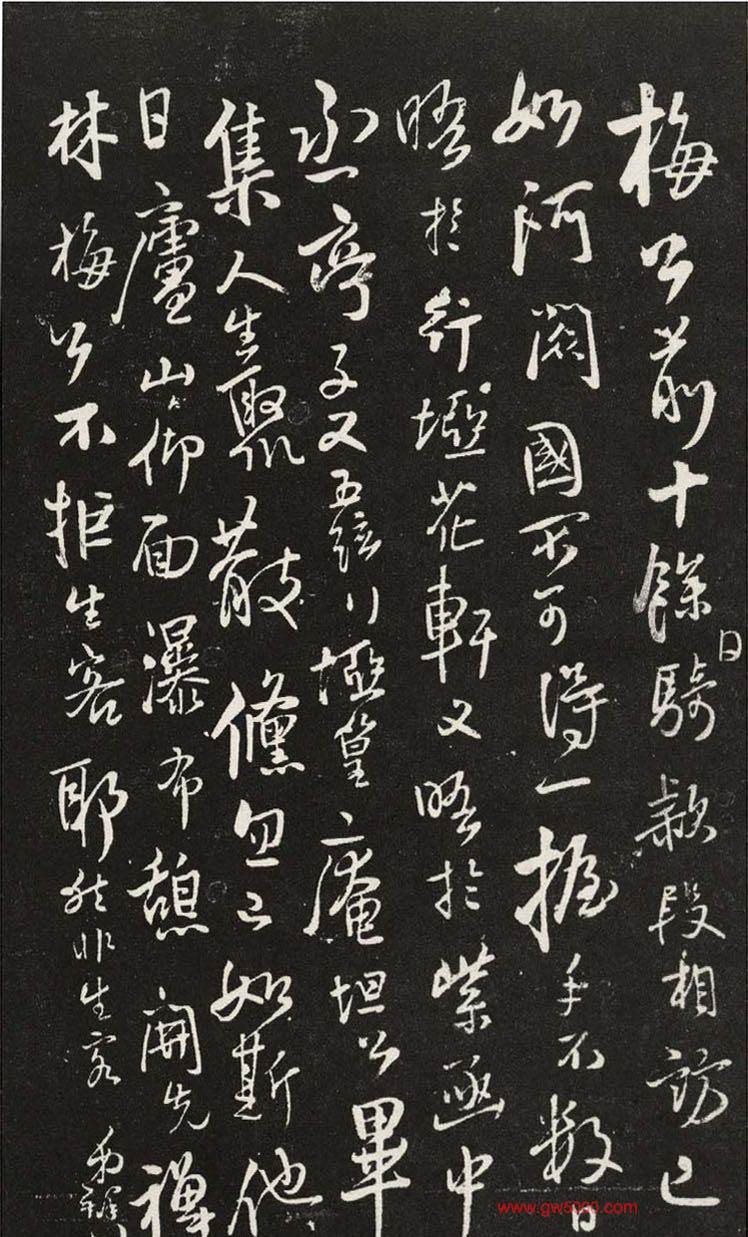 梅公前十餘日騎款段相訪已
如阿閦國不可得一握手不數日
晤於行塢花軒又晤於紫函中
丞亭子又五弦行塢皇皇庵坦公畢
集人生聚散儵忽正如斯他
日廬山仰面瀑布憩開先禪
林梅公不拒生客耶然非生客
www.gw5000.com